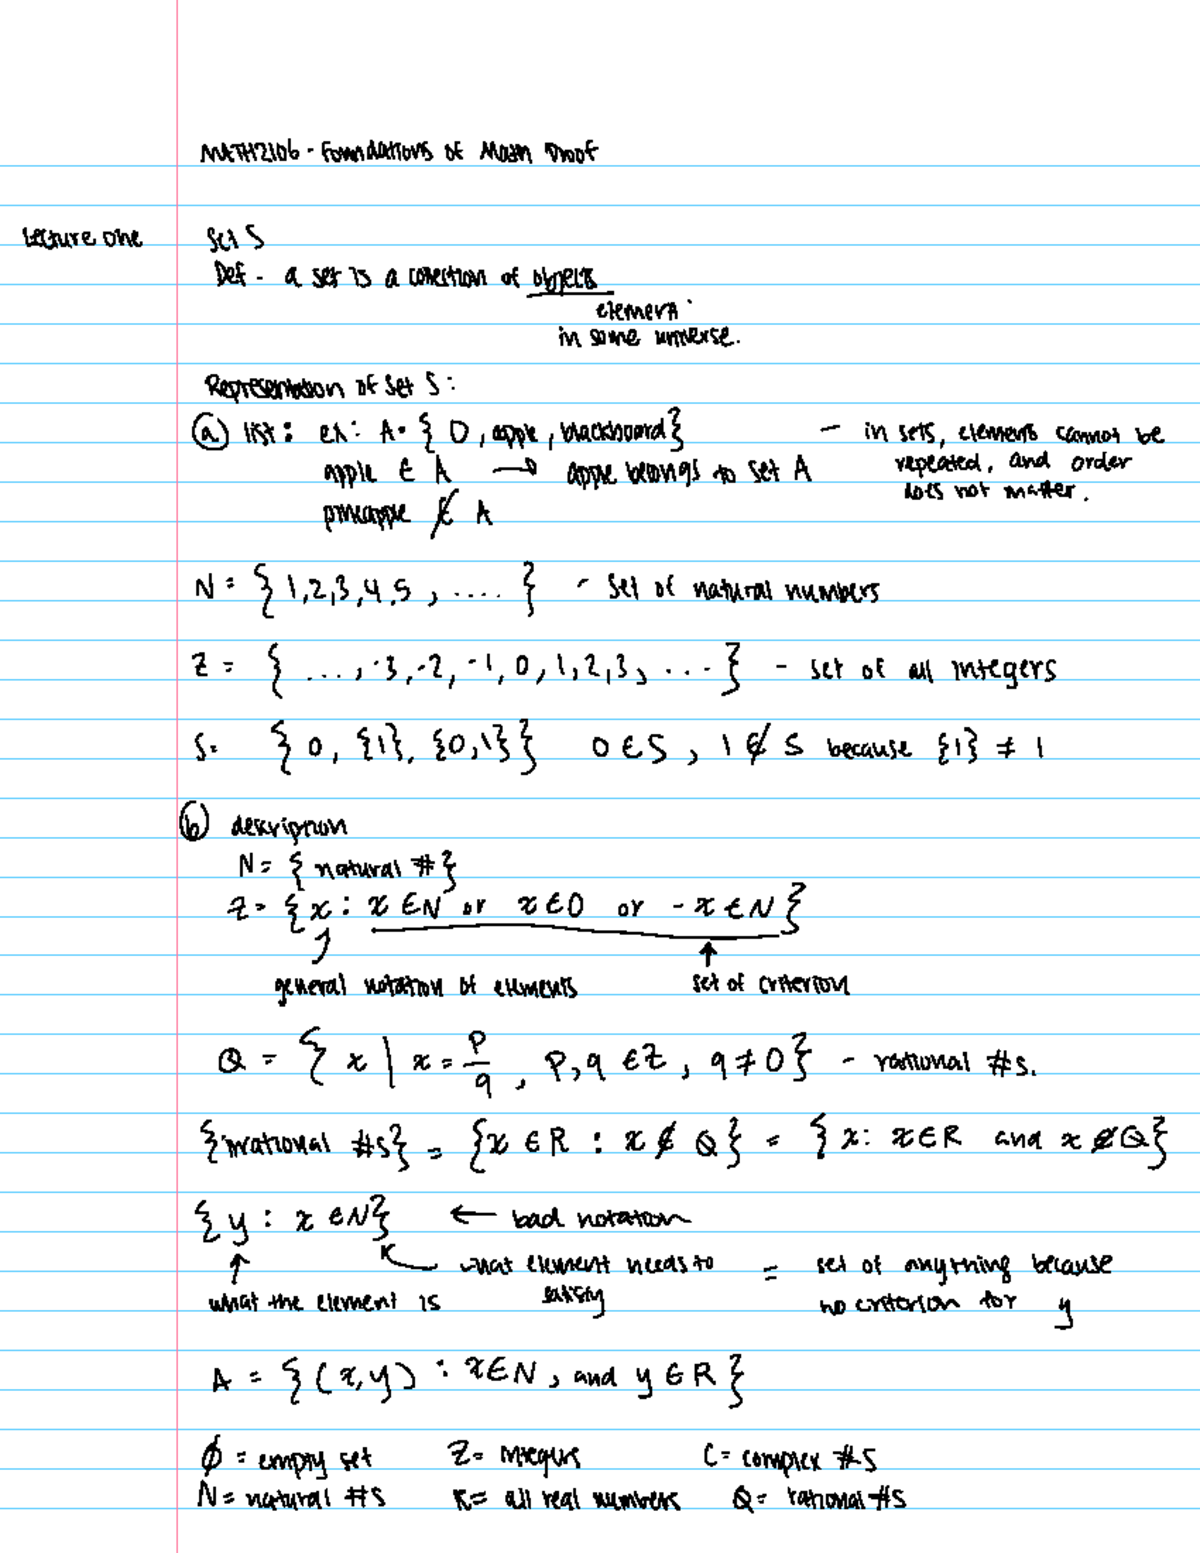 MATH2106 - Foundations of Math Proof
Lecture one
Set S
Def - a set is a collection of objects
element
in some universe.
Representation of Set S:
(a) list: ex: A = { 0, apple, blackboard}
- in sets, elements cannot be
repeated, and order
does not matter.
apple ∈ A → apple belongs to set A
pineapple ∉ A
N = { 1,2,3,4,5, .... } - set of natural numbers
Z = { ..., -3, -2, -1, 0, 1, 2, 3, ... } - set of all integers
S = { 0, {1}, {0,1}} 0 ∈ S, 1 ∉ S because {1} ≠ 1
(b) description
N = { natural # }
Z = { x : x ∈ N or x ∈ 0 or -x ∈ N }
general notation of elements
set of criterion
Q = { x | x = p/q, p,q ∈ Z, q ≠ 0} - rational #s.
{irrational #s} = {x ∈ R : x ∉ Q} = { x: x ∈ R and x ∉ Q}
{ y : x ∈ N} ← bad notation
what the element is
what element needs to
satisfy
= set of anything because
no criterion for y
A = { (x,y) : x ∈ N, and y ∈ R }
∅ = empty set Z = integers C = complex #s
N = natural #s R = all real numbers Q = rational #s